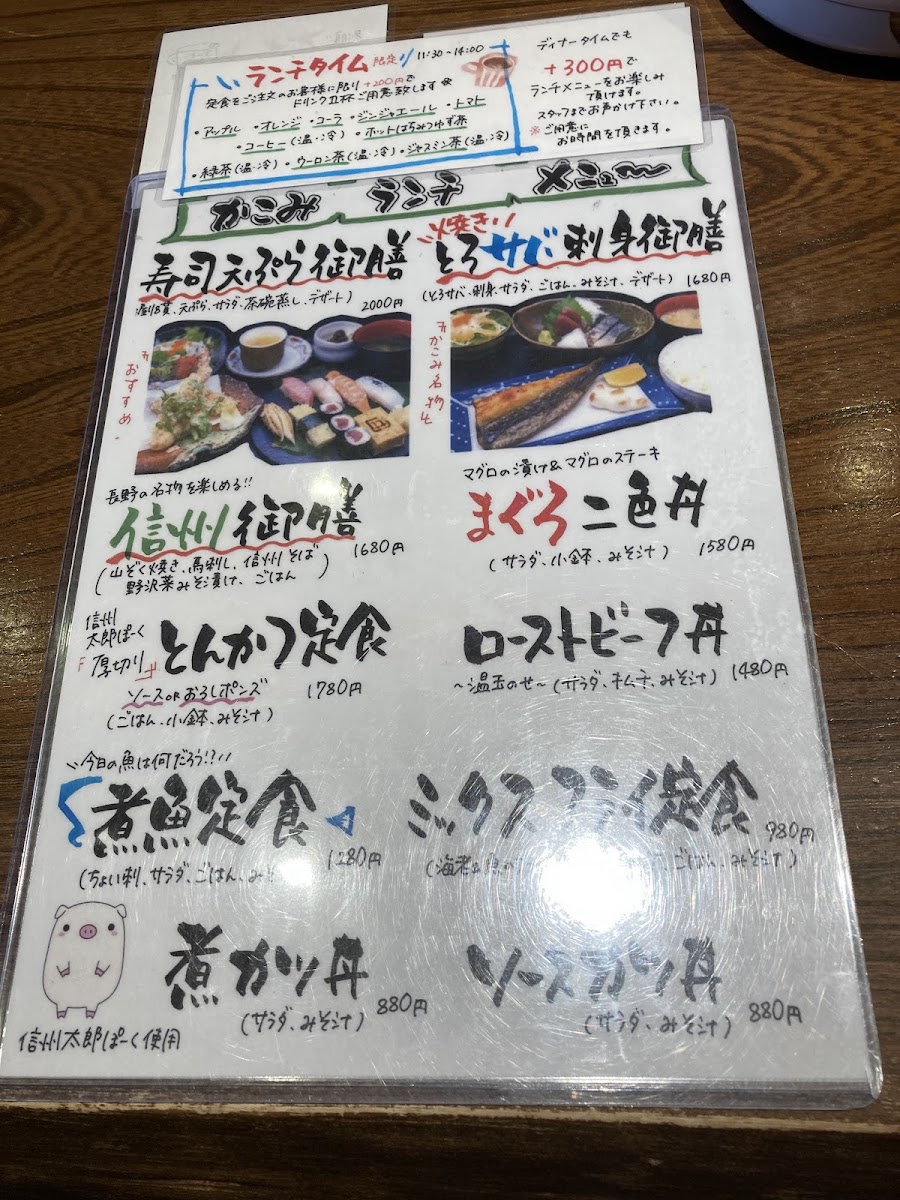 ランチタイム 限定!! 11:30~14:00
定食をご注文のお客様に限り +200円で
ドリンク1杯ご用意致します
・アップル ・オレンジ ・コーラ ・ジンジャエール ・トマト
・コーヒー(温・冷) ・ホットはちみつゆず茶
・緑茶(温・冷) ・ウーロン茶(温・冷) ・ジャスミン茶(温・冷)
ディナータイムでも
+300円で
ランチメニューをお楽しみ
頂けます。
スタッフまでお声かけ下さい。
※ご用意に
お時間を頂きます。
かこみ ランチ メニュー
寿司天ぷら御膳
(握り8貫、天ぷら、サラダ、茶碗蒸し、デザート) 2000円
おすすめ
焼き!!
とろサバ刺身御膳
(とろサバ、刺身、サラダ、ごはん、みそ汁、デザート) 1680円
かこみ名物
長野の名物を楽しめる!!
信州御膳
1680円
(山ぞく焼き、馬刺し、信州そば
野沢菜みそ漬け、ごはん)
マグロの漬け&マグロのステーキ
まぐろ二色丼
(サラダ、小鉢、みそ汁) 1580円
信州
太郎ぽーく
「厚切り」
とんかつ定食
ソースorおろしポンズ 1780円
(ごはん、小鉢、みそ汁)
ローストビーフ丼
~温玉のせ~(サラダ、キムチ、みそ汁) 1480円
今日の魚は何だろう!?
煮魚定食
1280円
(ちょい刺、サラダ、ごはん、みそ
ミックスフライ定食
980円
(海老&
ごはん、みそ汁)
煮カツ丼
(サラダ、みそ汁) 880円
ソースカツ丼
(サラダ、みそ汁) 880円
信州太郎ぽーく使用